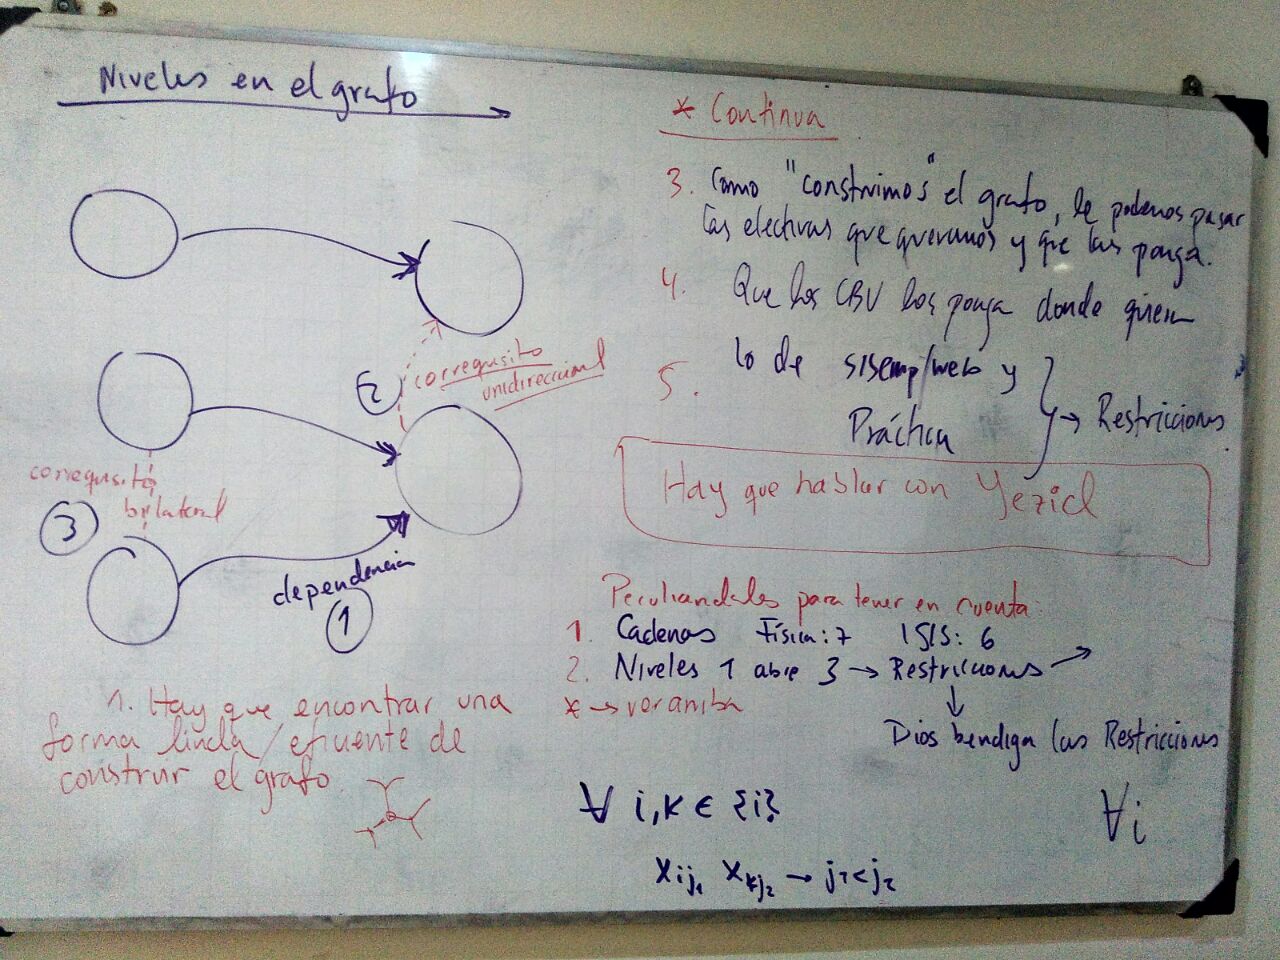 Niveles en el grafo
2
correquisito
unidireccional
correquisito
bilateral
3
dependencia
1
1. Hay que encontrar una
forma linda/eficiente de
construir el grafo.
* Continua
3. Como "construimos" el grafo, le podemos pasar
las electivas que queramos y que las ponga.
4. Que los CBU los ponga donde quiera
5. lo de sisemp/web y
Práctica
→ Restricciones
Hay que hablar con Yezid
Peculiaridades para tener en cuenta:
1. Cadenas Física: 7 ISIS: 6
2. Niveles 1 abre 3 → Restricciones →
* → ver arriba
↓
Dios bendiga las Restricciones
∀ i, k ∈ {i}
∀i
Xij₁ Xkj₂ → j₁ < j₂